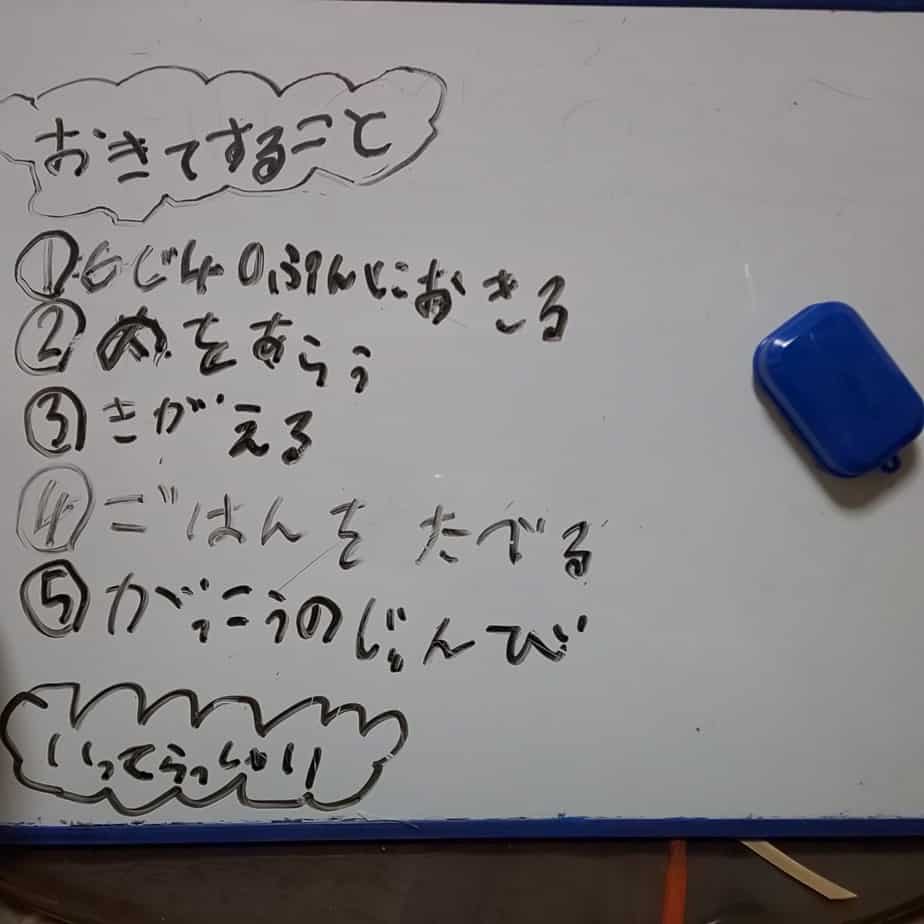 おきてすること
①6じ40ぷんにおきる
②めをあらう
③きがえる
④ごはんをたべる
⑤がっこうのじゅんび
いってらっしゃい